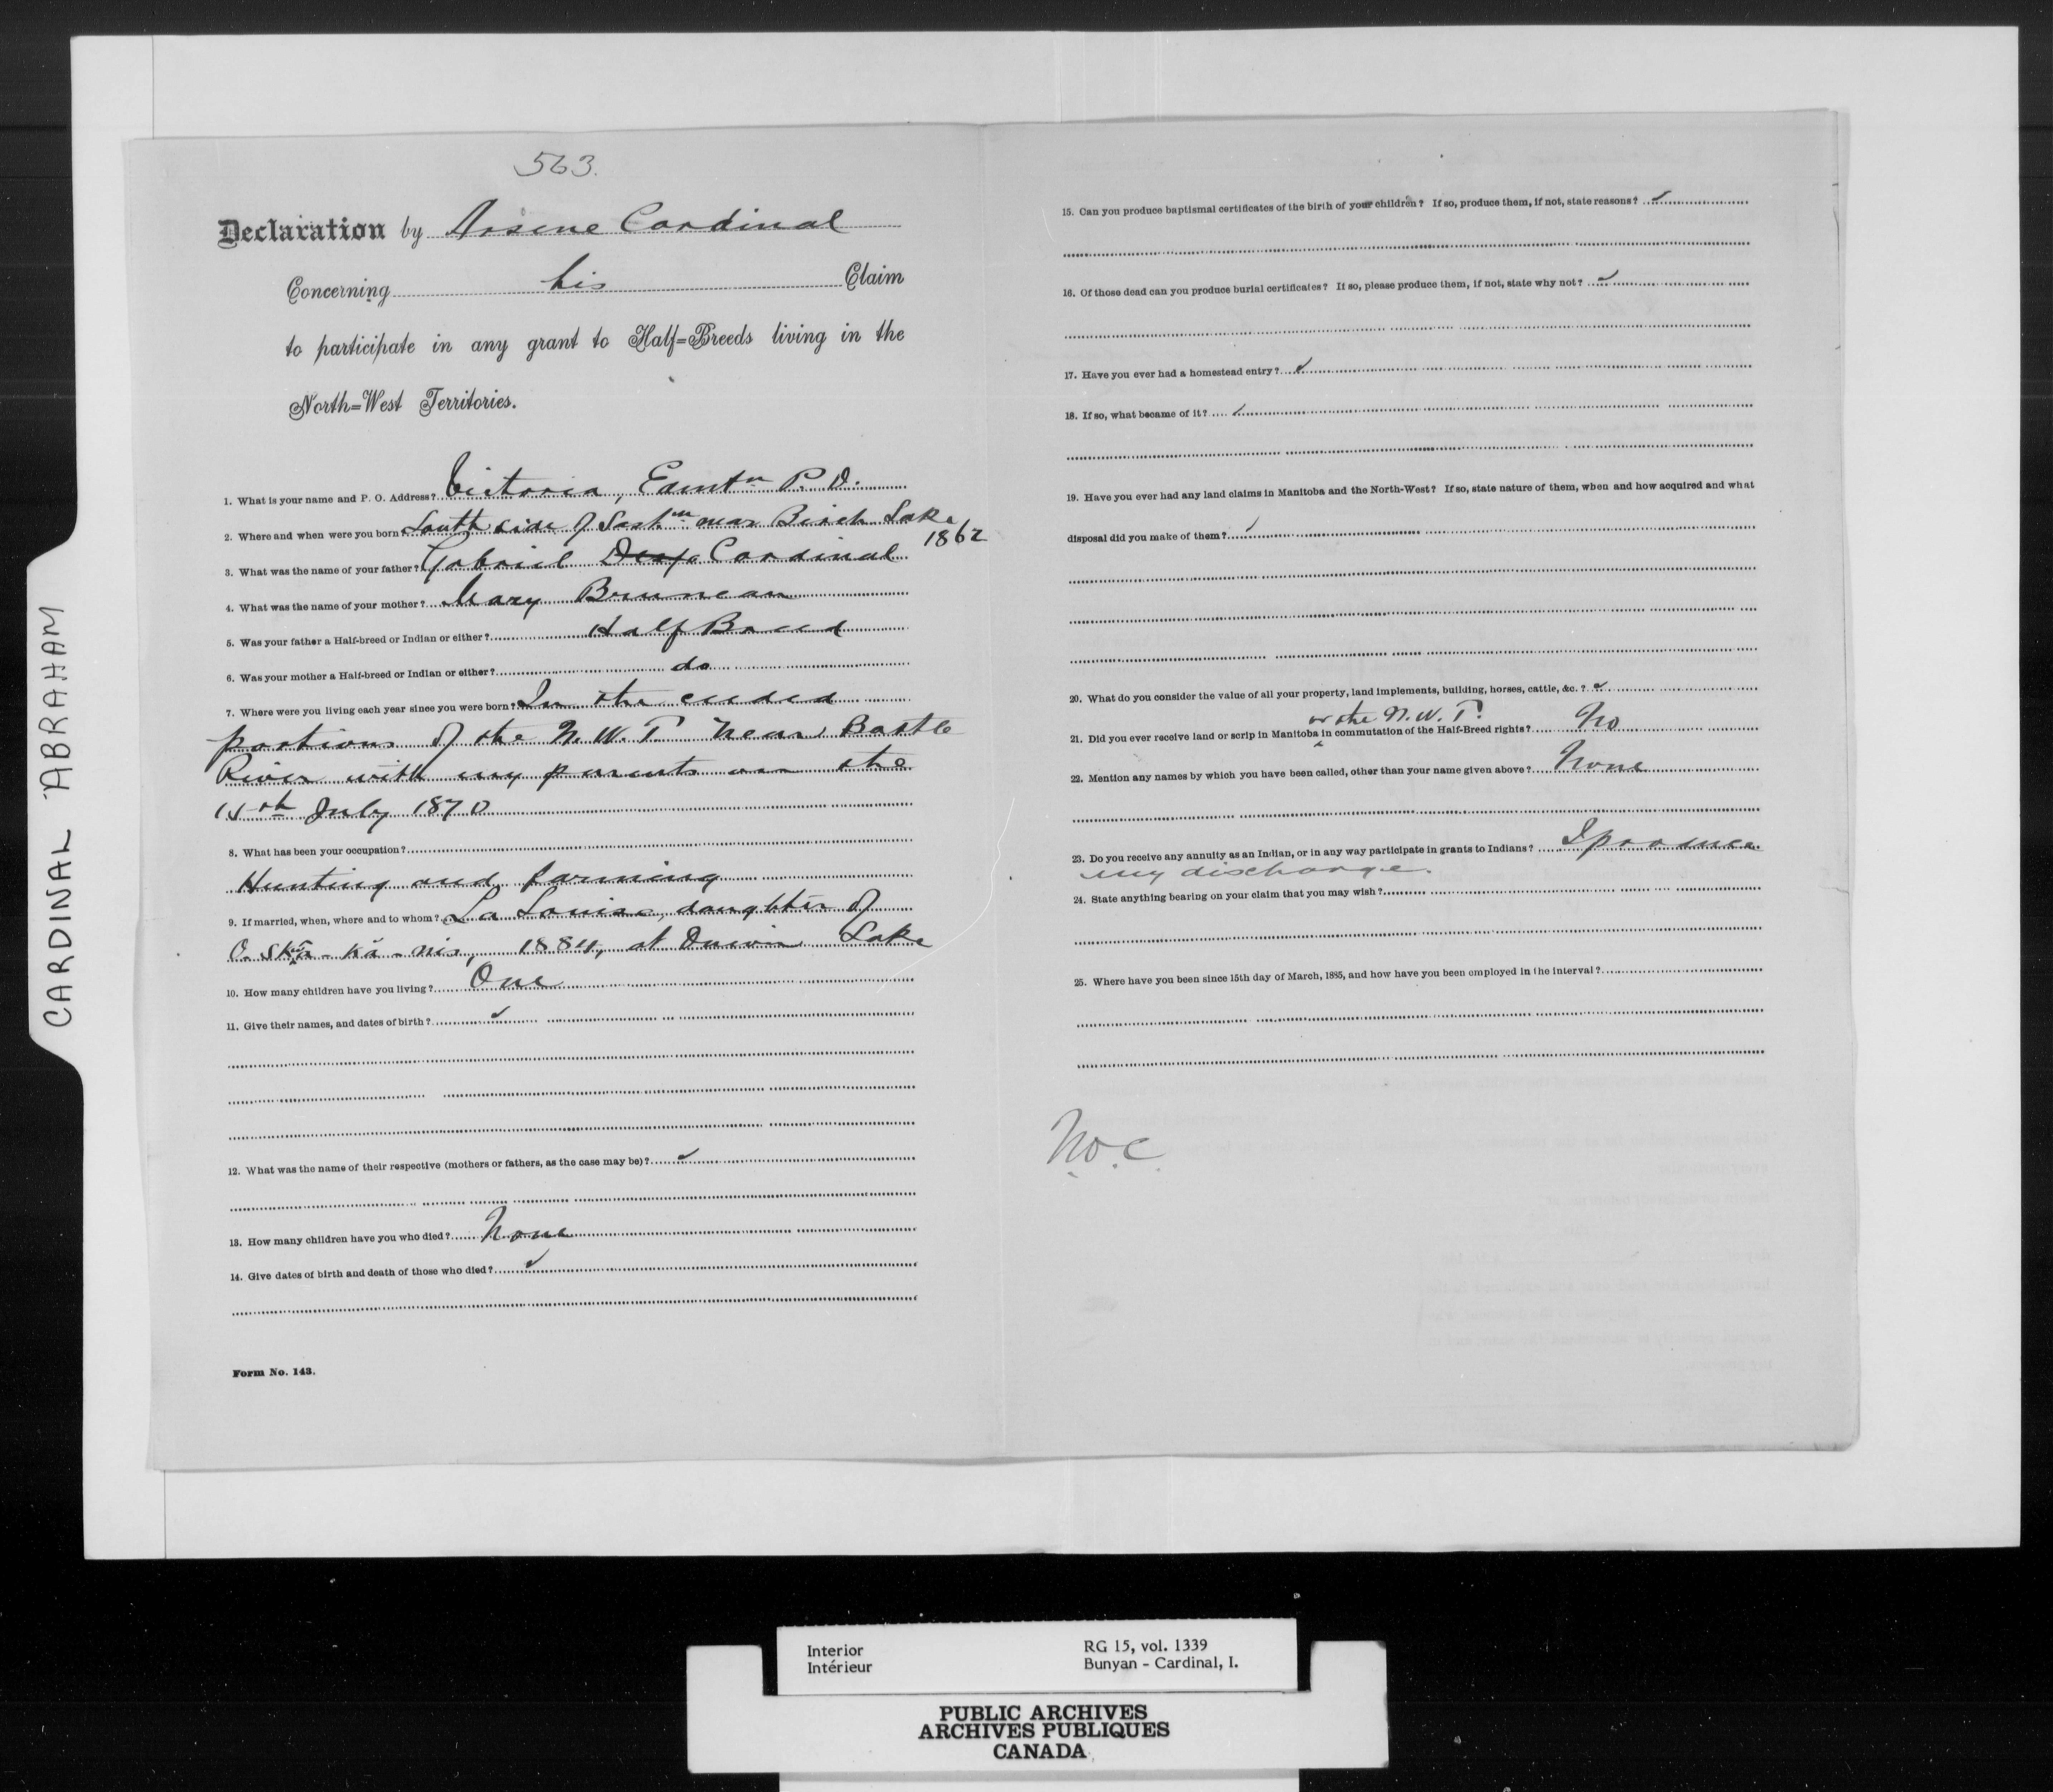 CARDINAL ABRAHAM
563.
Declaration by Arsene Cardinal
Concerning his Claim
to participate in any grant to Half=Breeds living in the
North=West Territories.
1. What is your name and P. O. Address? Victoria, Edmtn P. O.
2. Where and when were you born? South side of Sask.n near Birch Lake
1862
3. What was the name of your father? Gabriel Cardinal
4. What was the name of your mother? Mary Bruneau
5. Was your father a Half-breed or Indian or either? Half Breed
6. Was your mother a Half-breed or Indian or either? do
7. Where were you living each year since you were born? In the ceded
portions of the N. W. T. near Battle
River with my parents on the
15th July 1870
8. What has been your occupation?
Hunting and farming
9. If married, when, where and to whom? La Louise, daughter of
1884, at Lake
10. How many children have you living? One
11. Give their names, and dates of birth? ✓
12. What was the name of their respective (mothers or fathers, as the case may be)? ✓
13. How many children have you who died? None
14. Give dates of birth and death of those who died? ✓
Form No. 143.
15. Can you produce baptismal certificates of the birth of your children? If so, produce them, if not, state reasons? ✓
16. Of those dead can you produce burial certificates? If so, please produce them, if not, state why not? ✓
17. Have you ever had a homestead entry? ✓
18. If so, what became of it? ✓
19. Have you ever had any land claims in Manitoba and the North-West? If so, state nature of them, when and how acquired and what
disposal did you make of them? ✓
20. What do you consider the value of all your property, land implements, building, horses, cattle, &c. ? ✓
or the N. W. T.
21. Did you ever receive land or scrip in Manitoba in commutation of the Half-Breed rights? No
22. Mention any names by which you have been called, other than your name given above? None
23. Do you receive any annuity as an Indian, or in any way participate in grants to Indians? I produce
my discharge.
24. State anything bearing on your claim that you may wish?
25. Where have you been since 15th day of March, 1885, and how have you been employed in the interval?
Interior
Intérieur
RG 15, vol. 1339
Bunyan - Cardinal, I.
PUBLIC ARCHIVES
ARCHIVES PUBLIQUES
CANADA